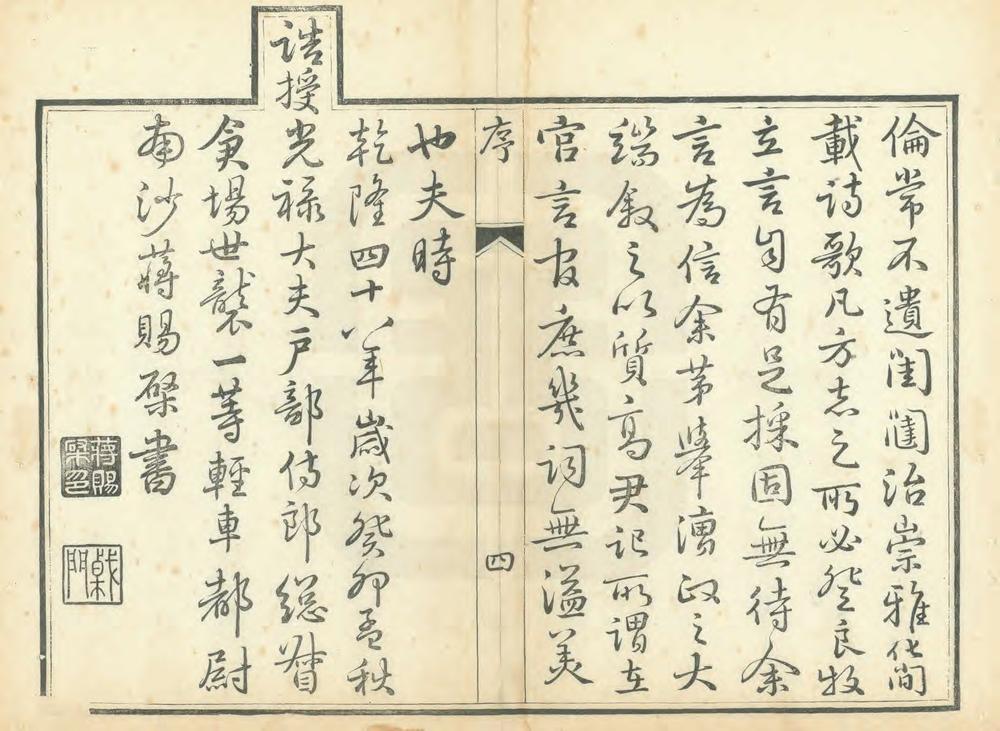 倫常不遺閨閫治崇雅化簡
載詩歌凡方志之所必登良牧
立言自有足採固無待余
言為信余第舉漕政之大
端叙之以質高尹記所謂在
官言官庶幾詞無溢美
序
四
也夫時
乾隆四十八年歲次癸卯孟秋
誥授光禄大夫戶部侍郎總督
倉場世襲一等輕車都尉
南沙蔣賜棨書
蔣賜棨印
棨門